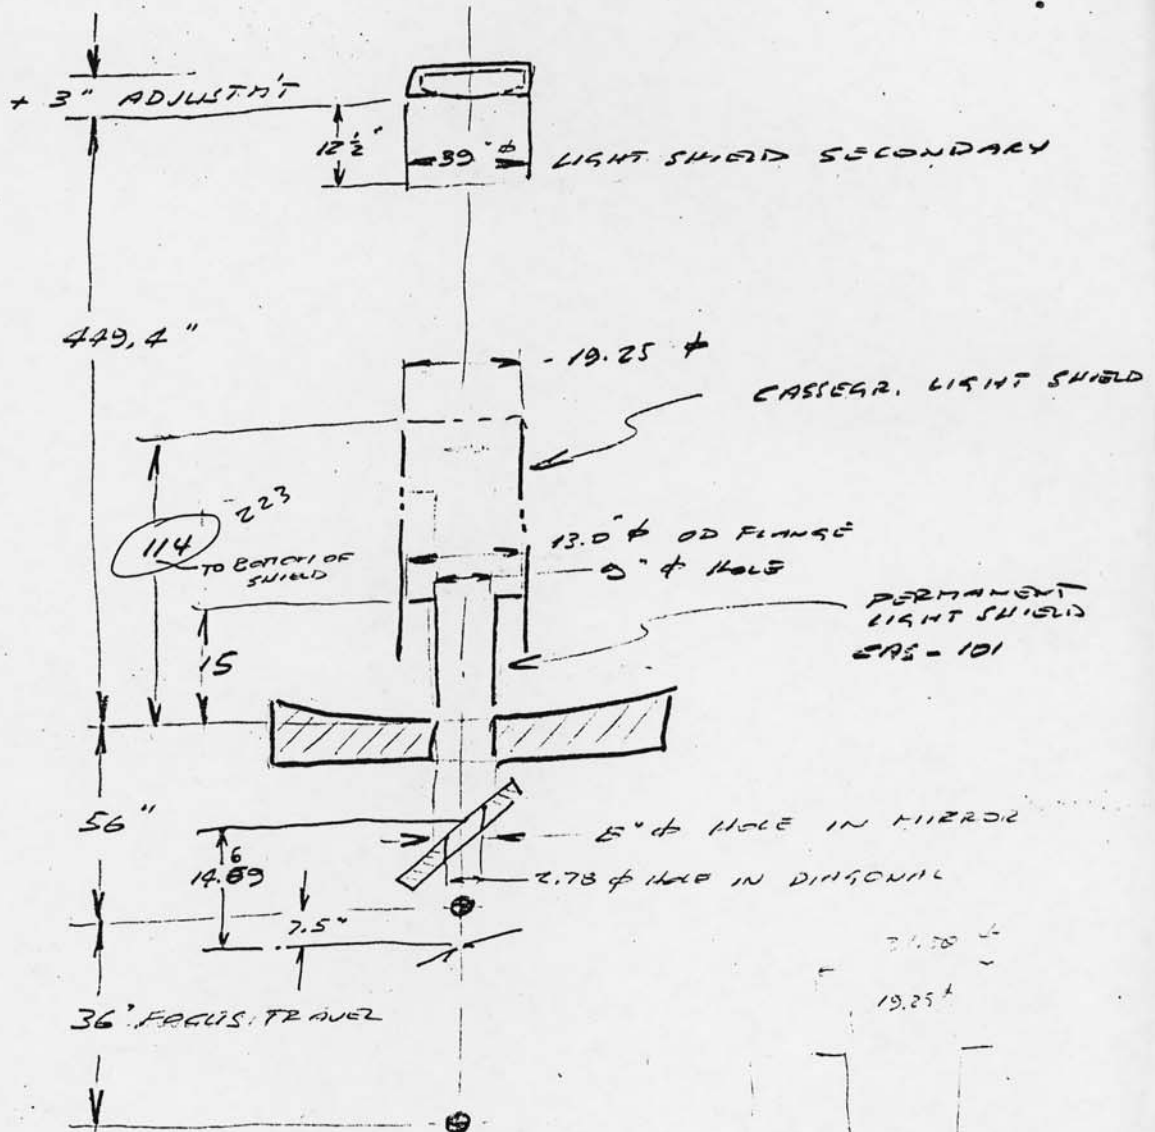 + 3" ADJUSTM'T
12 ½"
39" ϕ
LIGHT SHIELD SECONDARY
449,4"
- 19.25 ϕ
CASSEGR. LIGHT SHIELD
223
114
TO BOTTOM OF
SHIELD
13.0" ϕ OD FLANGE
9" ϕ HOLE
15
PERMANENT
LIGHT SHIELD
CAS - 101
56"
HOLE IN MIRROR
6
14.69
2.78 ϕ HOLE IN DIAGONAL
7.5"
36" FOCUS TRAVEL
19.25 ϕ